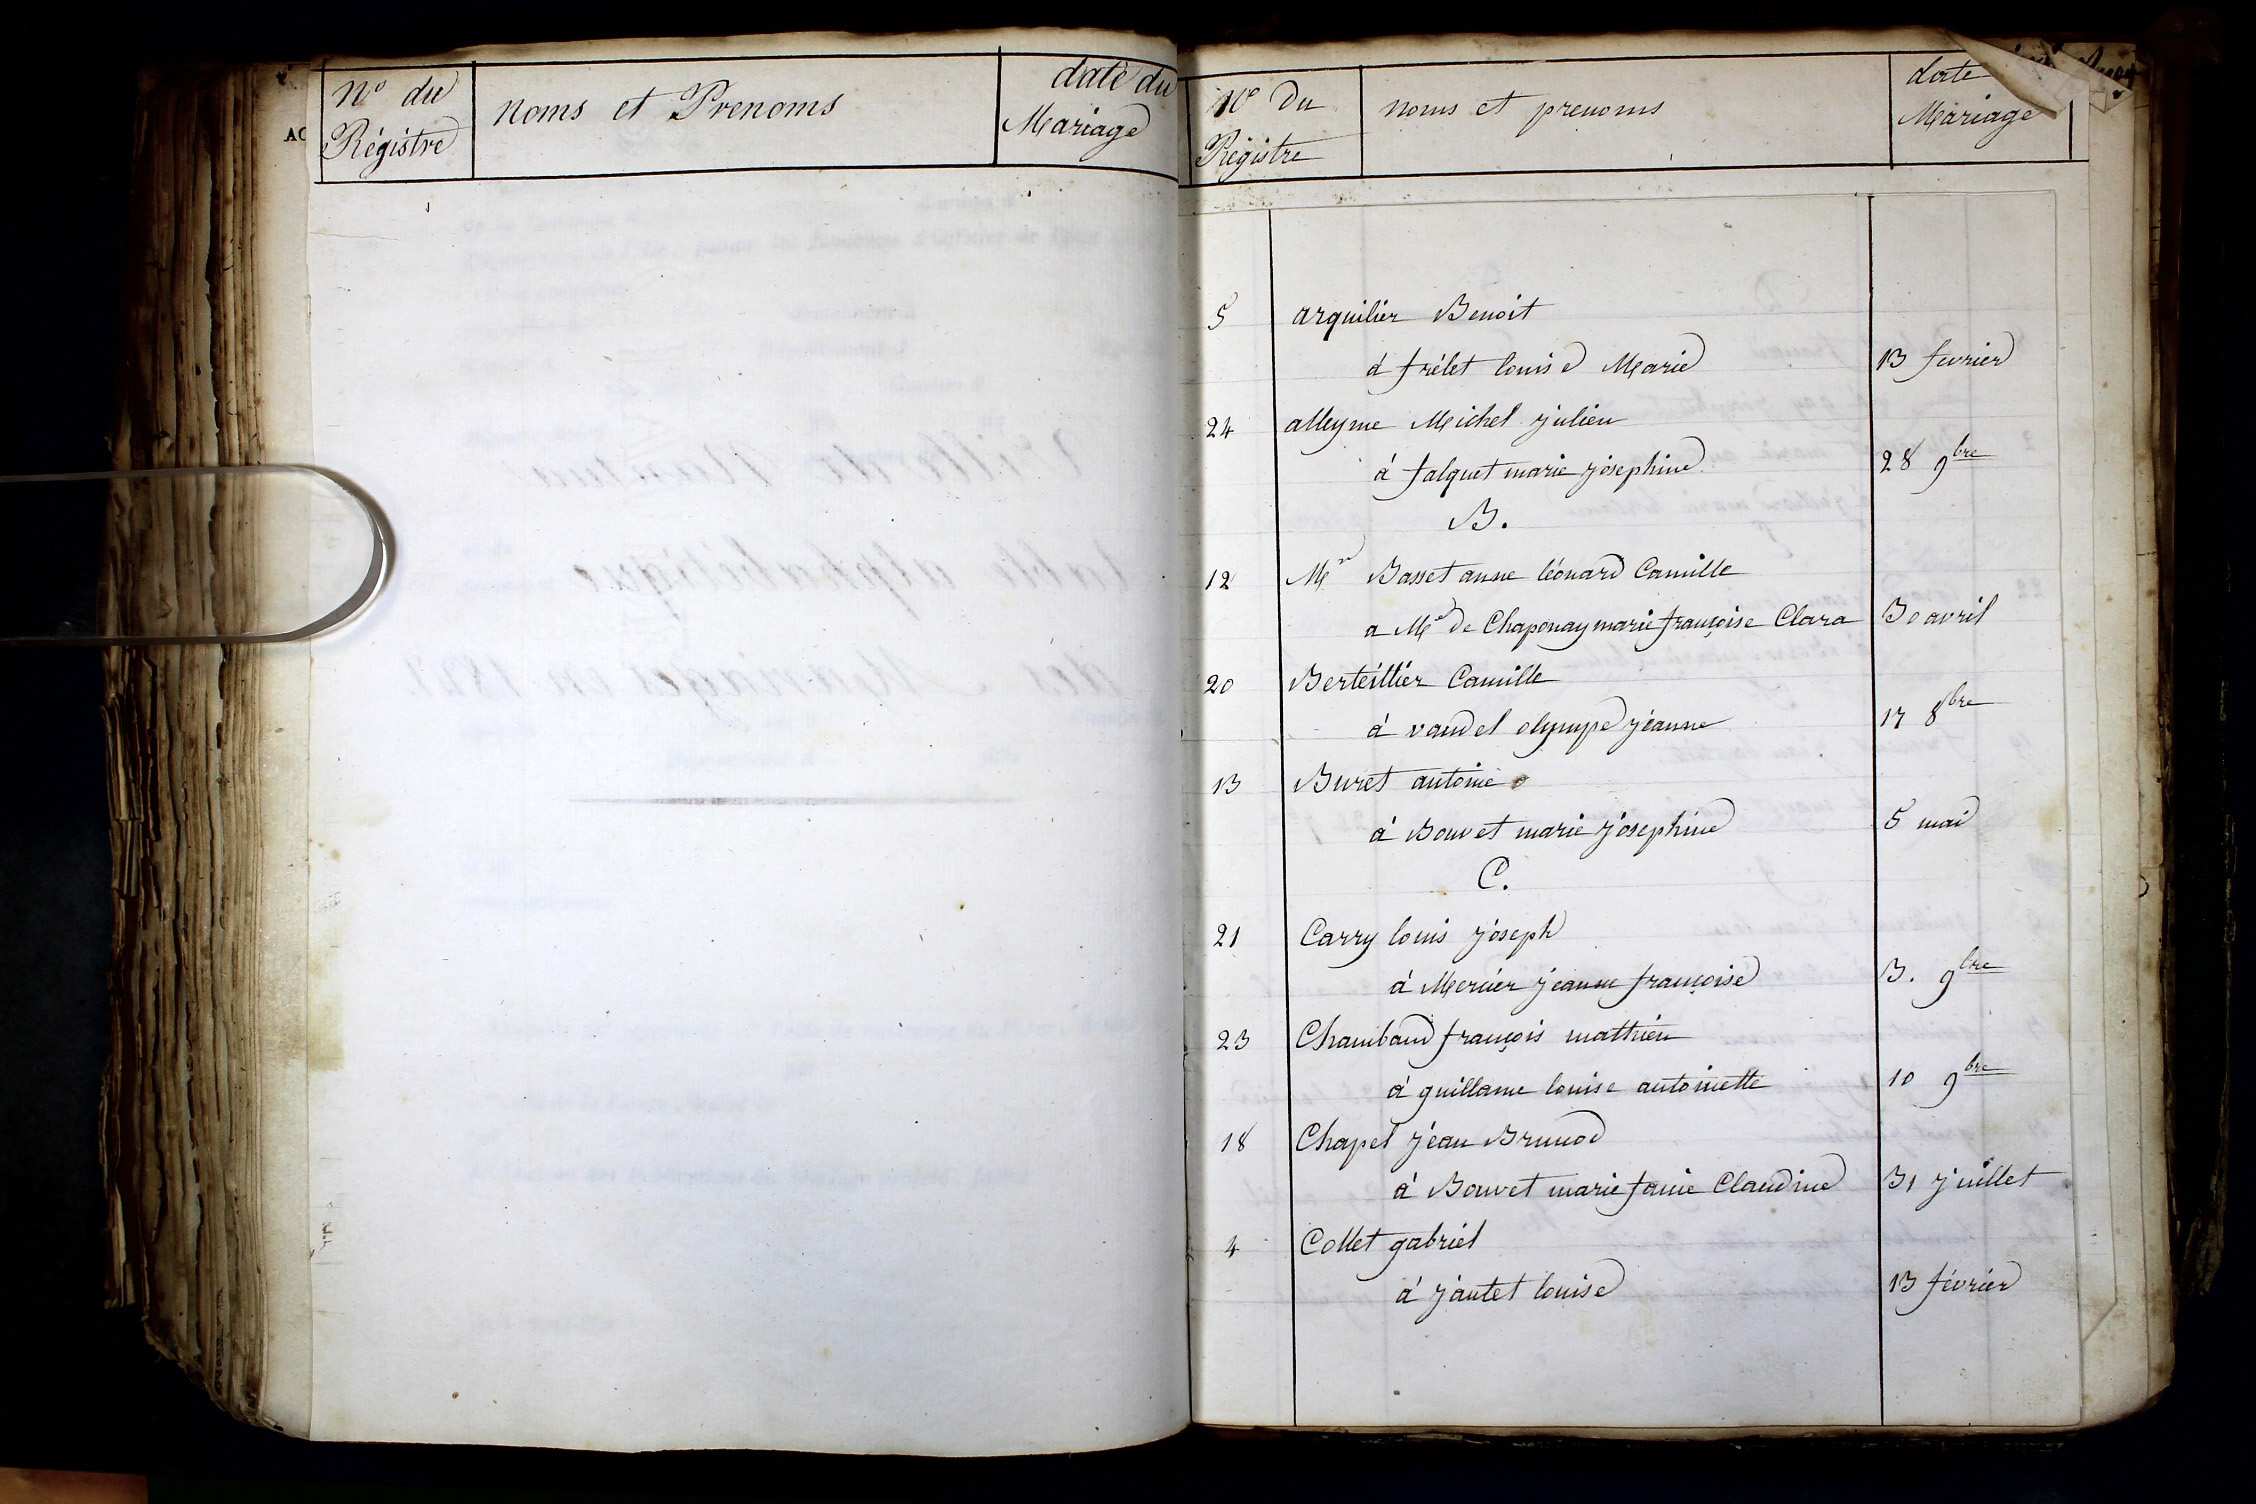 N° du
Régistre
Noms et Prenoms
date du
Mariage
N° Du
Régistre
noms et prenoms
date
Mariage
5 arquilier Benoit
à frélet louise Marie 13 fevrier
24 alleyme Michel julien
à falquet marie josephine 28 9bre
B.
12 Mr Basset anne léonard Camille
a Mde De Chaponay marie françoise Clara 30 avril
20 Berteillier Camille
à vaudel olympe jeanne 17 8bre
13 Buret antoine
à Bouvet marie josephine 5 mai
C.
21 Carry louis joseph
à Mercier jeanne françoise 3. 9bre
23 Chambaud françois mathieu
à guillame louise antoinette 10 9bre
18 Chapel jean Brunod
à Bouvet marie fanie Claudine 31 juillet
4 Collet gabriel
à jantet louise 13 février